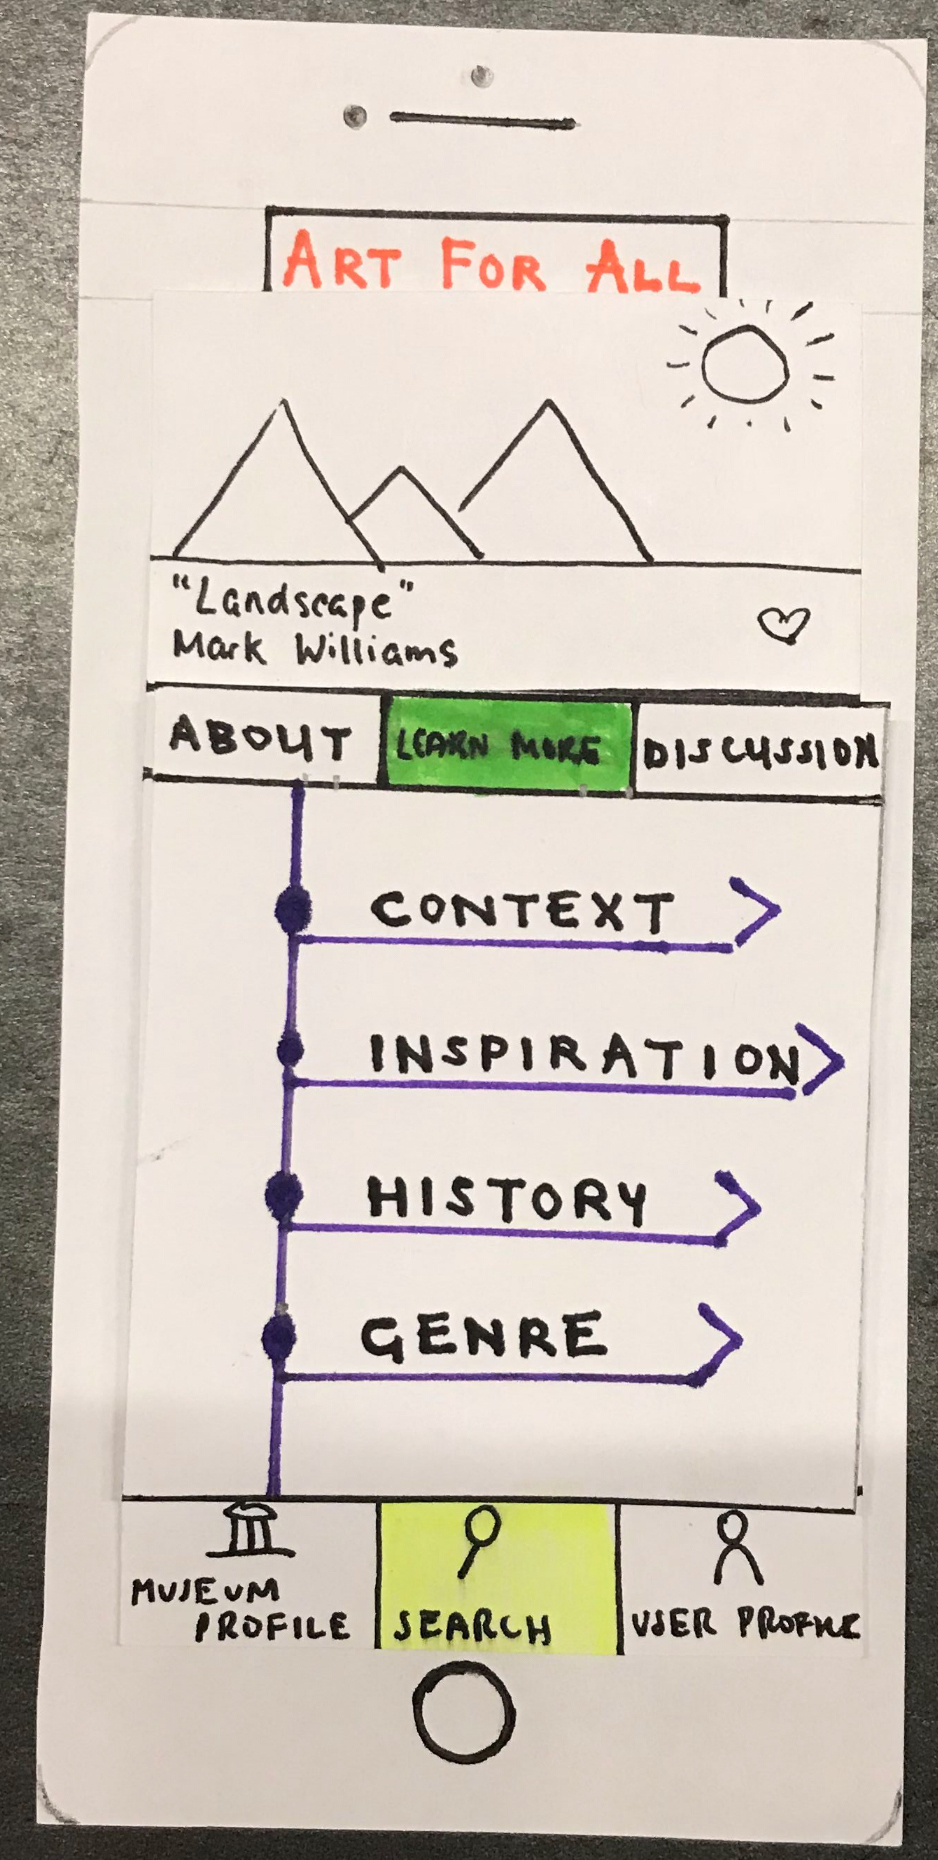 ART FOR ALL
"Landscape"
Mark Williams
ABOUT
LEARN MORE
DISCUSSION
CONTEXT
INSPIRATION
HISTORY
GENRE
MUSEUM
PROFILE
SEARCH
USER PROFILE